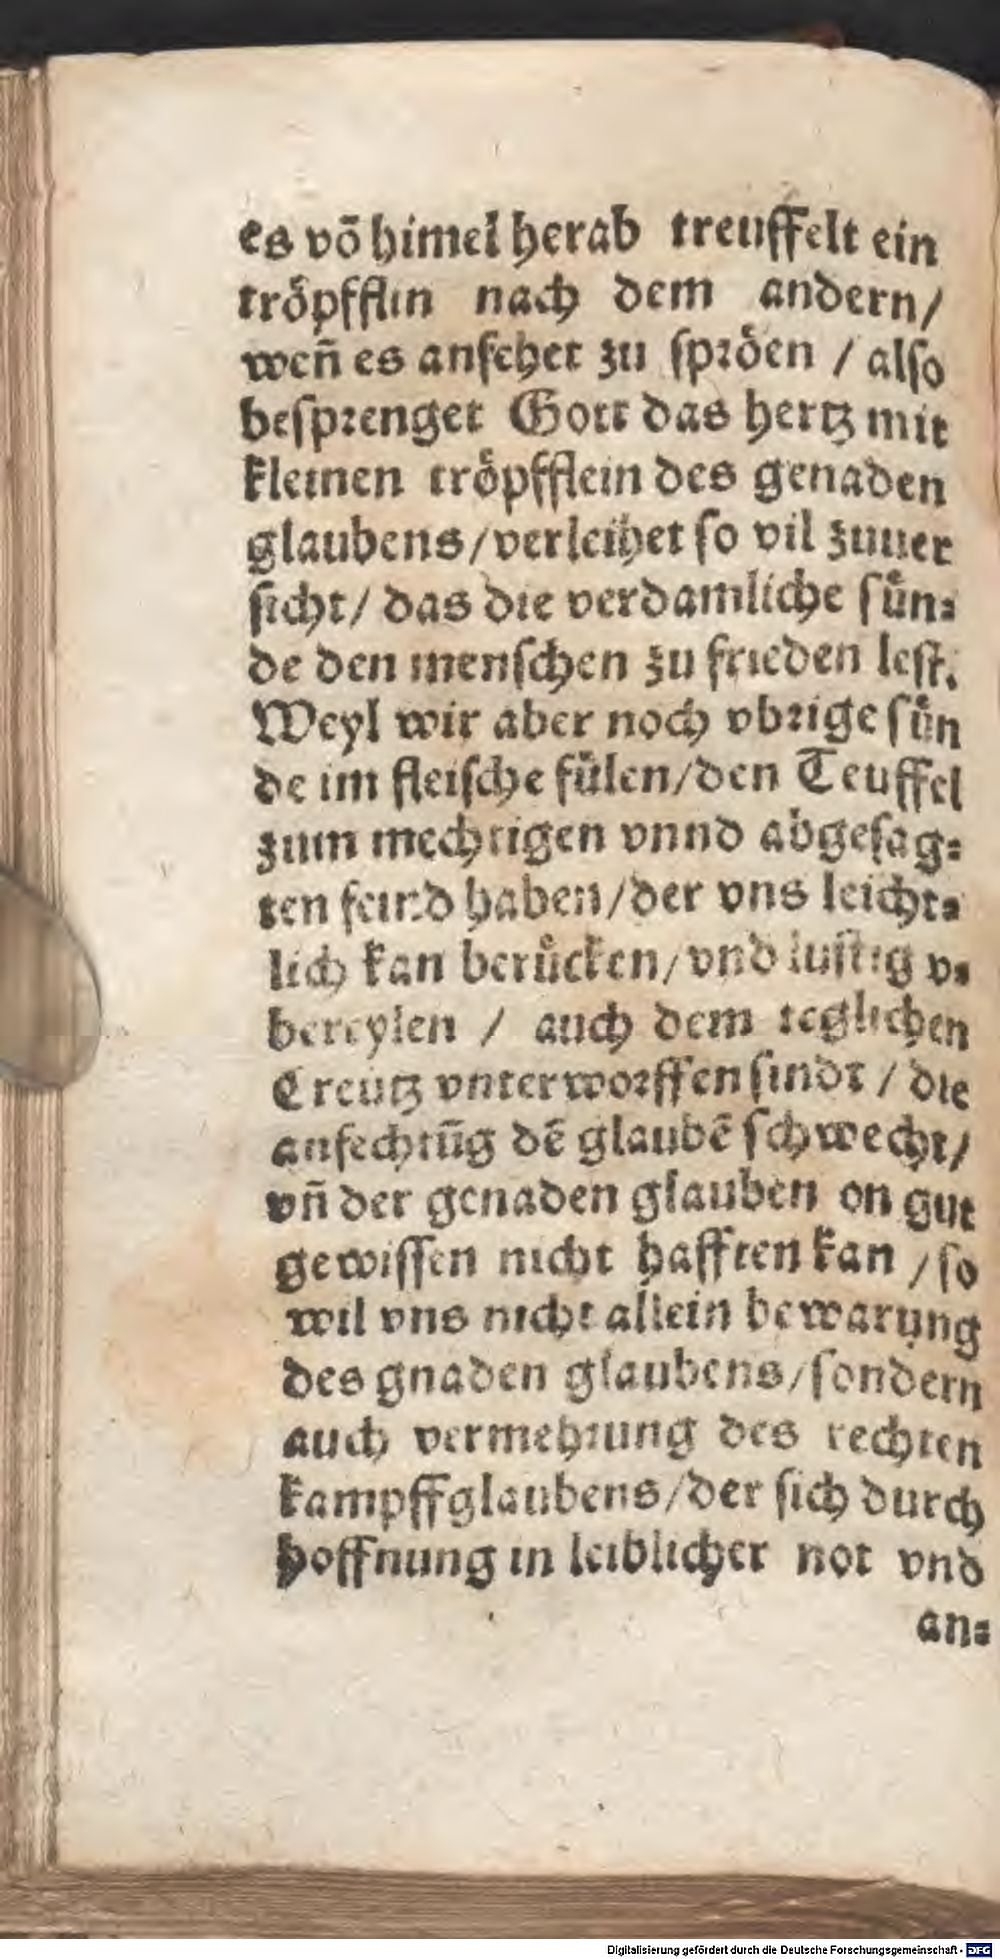 es võ himel herab treuffelt ein
tröpfflin nach dem andern/
weñ es anfehet zu spröen / also
besprenget Gott das hertz mit
kleinen tröpfflein des genaden
glaubens/verleihet so vil zuuer
sicht/ das die verdamliche sün⸗
de den menschen zu frieden lest.
Weyl wir aber noch vbrige sün
de im fleische fülen/den Teuffel
zum mechtigen vnnd abgesag⸗
ten feind haben/der vns leicht⸗
lich kan berücken/vnd lustig v⸗
bereylen / auch dem teglichen
Creutz vnterworffen sindt / die
anfechtũg dẽ glaubẽ schwecht/
vñ der genaden glauben on gut
gewissen nicht hafften kan /so
wil vns nicht allein bewarung
des gnaden glaubens/sondern
auch vermehrung des rechten
kampffglaubens/der sich durch
hoffnung in leiblicher not vnd
an⸗
Digitalisierung gefördert durch die Deutsche Forschungsgemeinschaft - DFG